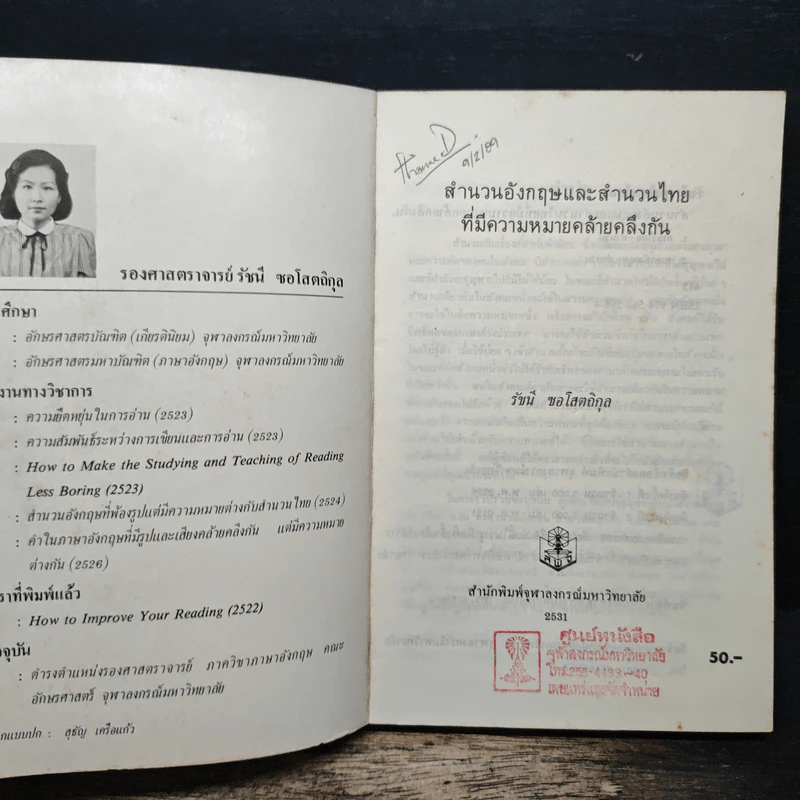 รองศาสตราจารย์ รัชนี ซอโสตถิกุล
ศึกษา
: อักษรศาสตรบัณฑิต (เกียรตินิยม) จุฬาลงกรณ์มหาวิทยาลัย
: อักษรศาสตรมหาบัณฑิต (ภาษาอังกฤษ) จุฬาลงกรณ์มหาวิทยาลัย
งานทางวิชาการ
: ความยืดหยุ่นในการอ่าน (2523)
: ความสัมพันธ์ระหว่างการเขียนและการอ่าน (2523)
: How to Make the Studying and Teaching of Reading
Less Boring (2523)
: สำนวนอังกฤษที่พ้องรูปแต่มีความหมายต่างกับสำนวนไทย (2524)
: คำในภาษาอังกฤษที่มีรูปและเสียงคล้ายคลึงกัน แต่มีความหมาย
ต่างกัน (2526)
ราที่พิมพ์แล้ว
: How to Improve Your Reading (2522)
จุบัน
: ดำรงตำแหน่งรองศาสตราจารย์ ภาควิชาภาษาอังกฤษ คณะ
อักษรศาสตร์ จุฬาลงกรณ์มหาวิทยาลัย
กแบบปก : สุธัญ เครือแก้ว
9/2/89
สำนวนอังกฤษและสำนวนไทย
ที่มีความหมายคล้ายคลึงกัน
รัชนี ซอโสตถิกุล
สำนักพิมพ์จุฬาลงกรณ์มหาวิทยาลัย
2531
ศูนย์หนังสือ
จุฬาลงกรณ์มหาวิทยาลัย
โทร.255-4433-40
เผยแพร่และจัดจำหน่าย
50.-